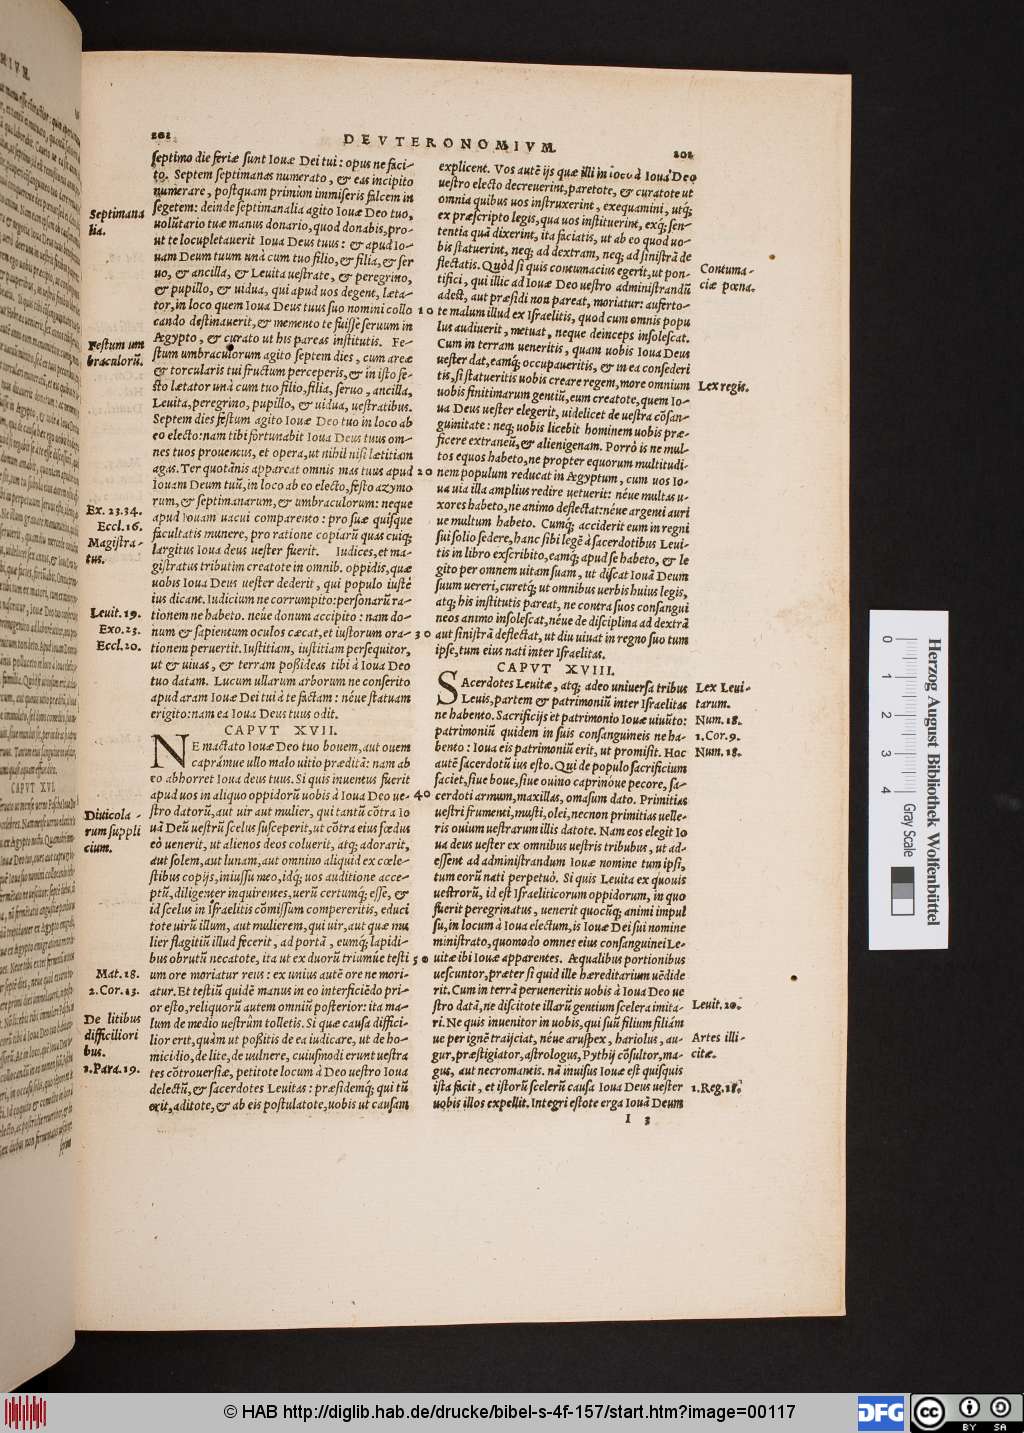 201
DEVTERONOMIVM.
202
septimo die feriæ sunt Iouæ Dei tui : opus ne faci-
to. Septem septimanas numerato, & eas incipito
numerare, postquam primùm immiseris falcem in
segetem: deinde septimanalia agito Iouæ Deo tuo,
uolũtario tuæ manus donario, quod donabis, pro-
ut te locupletauerit Ioua Deus tuus : & apud Io-
uam Deum tuum unà cum tuo filio, & filia, & ser
uo, & ancilla, & Leuita uestrate, & peregrino,
& pupillo, & uidua, qui apud uos degent, læta-
tor, in loco quem Ioua Deus tuus suo nomini collo
cando destinauerit, & memento te fuisse seruum in
Ægypto, & curato ut his pareas institutis. Fe-
stum umbraculorum agito septem dies, cum areæ
& torcularis tui fructum perceperis, & in isto fe-
sto lætator unà cum tuo filio, filia, seruo, ancilla,
Leuita, peregrino, pupillo, & uidua, uestratibus.
Septem dies festum agito Iouæ Deo tuo in loco ab
eo electo: nam tibi fortunabit Ioua Deus tuus om-
nes tuos prouentus, et opera, ut nihil nisi lætitiam
agas. Ter quotãnis appareat omnis mas tuus apud
Iouam Deum tuũ, in loco ab eo electo, festo azymo
rum, & septimanarum, & umbraculorum: neque
apud Iouam uacui comparento : pro suæ quisque
facultatis munere, pro ratione copiarũ quas cuiq;
largitus Ioua deus uester fuerit. Iudices, et ma-
gistratus tributim creatote in omnib. oppidis, quæ
uobis Ioua Deus uester dederit, qui populo iustè
ius dicant. Iudicium ne corrumpito: personarũ ra-
tionem ne habeto. neúe donum accipito : nam do-
num & sapientum oculos cæcat, et iustorum ora-
tionem peruertit. Iustitiam, iustitiam persequitor,
ut & uiuas, & terram poßideas tibi à Ioua Deo
tuo datam. Lucum ullarum arborum ne conserito
apud aram Iouæ Dei tui à te factam : néue statuam
erigito: nam ea Ioua Deus tuus odit.
CAPVT XVII.
NE mactato Iouæ Deo tuo bouem, aut ouem
caprámue ullo malo uitio præditã: nam ab
eo abhorret Ioua deus tuus. Si quis inuentus fuerit
apud uos in aliquo oppidorũ uobis à Ioua Deo ue-
stro datorũ, aut uir aut mulier, qui tantũ cõtra Io
uã Deũ uestrũ scelus susceperit, ut cõtra eius fœdus
eò uenerit, ut alienos deos coluerit, atq; adorarit,
aut solem, aut lunam, aut omnino aliquid ex cœle-
stibus copijs, iniussu meo, idq; uos auditione acce-
ptũ, diligenter inquirentes, uerũ certumq; esse, &
id scelus in Israelitis cõmissum compereritis, educi
tote uirũ illum, aut mulierem, qui uir, aut quæ mu
lier flagitiũ illud fecerit, ad portã, eumq; lapidi-
bus obrutũ necatote, ita ut ex duorũ triumúe testi
um ore moriatur reus : ex unius autē ore ne mori-
atur. Et testiũ quidē manus in eo interficiēdo pri-
or esto, reliquorũ autem omniũ posterior: ita ma-
lum de medio uestrùm tolletis. Si quæ causa diffici-
lior erit, quàm ut poßitis de ea iudicare, ut de ho-
micidio, de lite, de uulnere, cuiusmodi erunt uestra
tes cõtrouersiæ, petitote locum à Deo uestro Ioua
delectũ, & sacerdotes Leuitas : præsidemq; qui tũ
erit, aditote, & ab eis postulatote, uobis ut causam
Septimana
lia.
Festum um
braculorũ.
Ex. 23.34.
Eccl. 16.
Magistra-
tus.
Leuit. 19.
Exo. 23.
Eccl. 20.
Diuicola-
rum suppli
cium.
Mat. 18.
2. Cor. 13.
De litibus
difficiliori
bus.
2. Para. 19.
10
20
30
40
50
explicent. Vos autē ijs quæ illi in loco à Ioua Deo
uestro electo decreuerint, paretote, & curatote ut
omnia quibus uos instruxerint, exequamini, utq;
ex præscripto legis, qua uos instituerint, exq; sen-
tentia quã dixerint, ita faciatis, ut ab eo quod uo-
bis statuerint, neq; ad dextram, neq; ad sinistrã de
flectatis. Quòd si quis contumacius egerit, ut pon-
tifici, qui illic ad Iouæ Deo uestro administrandũ
adest, aut præsidi non pareat, moriatur: auferto-
te malum illud ex Israelitis, quod cum omnis popu
lus audiuerit, metuat, neque deinceps insolescat.
Cum in terram ueneritis, quam uobis Ioua Deus
uester dat, eamq; occupaueritis, & in ea consederi
tis, si statueritis uobis creare regem, more omnium
uobis finitimarum gentiũ, eum creatote, quem Io-
ua Deus uester elegerit, uidelicet de uestra cõsan-
guinitate : neq; uobis licebit hominem uobis præ-
ficere extraneũ, & alienigenam. Porrò is ne mul-
tos equos habeto, ne propter equorum multitudi-
nem populum reducat in Ægyptum, cum uos Io-
ua uia illa amplius redire uetuerit: néue multas u-
xores habeto, ne animo deflectat: néue argenti auri
ue multum habeto. Cumq; acciderit eum in regni
sui solio sedere, hanc sibi legē à sacerdotibus Leui-
tis in libro exscribito, eamq; apud se habeto, & le
gito per omnem uitam suam, ut discat Iouã Deum
suum uereri, curetq; ut omnibus uerbis huius legis,
atq; his institutis pareat, ne contra suos consangui
neos animo insolescat, néue de disciplina ad dextrã
aut sinistrã deflectat, ut diu uiuat in regno suo tum
ipse, tum eius nati inter Israelitas.
CAPVT XVIII.
SAcerdotes Leuitæ, atq; adeo uniuersa tribus
Leuis, partem & patrimoniũ inter Israelitas
ne habento. Sacrificijs et patrimonio Iouæ uiuũto:
patrimoniũ quidem in suis consanguineis ne ha-
bento : Ioua eis patrimoniũ erit, ut promisit. Hoc
autē sacerdotũ ius esto. Qui de populo sacrificium
faciet, siue boue, siue ouino caprinóue pecore, sa-
cerdoti armum, maxillas, omasum dato. Primitias
uestri frumenti, musti, olei, necnon primitias uelle-
ris ouium uestrarum illis datote. Nam eos elegit Io
ua deus uester ex omnibus uestris tribubus, ut ad-
essent ad administrandum Iouæ nomine tum ipsi,
tum eorũ nati perpetuò. Si quis Leuita ex quouis
uestrorũ, id est Israeliticorum oppidorum, in quo
fuerit peregrinatus, uenerit quocũq; animi impul
su, in locum à Ioua electum, is Iouæ Dei sui nomine
ministrato, quomodo omnes eius consanguinei Le-
uitæ ibi Iouæ apparentes. Æqualibus portionibus
uescuntor, præter si quid ille hæreditarium uēdide
rit. Cum in terrã perueneritis uobis à Ioua Deo ue
stro datã, ne discitote illarũ gentium scelera imita-
ri. Ne quis inuenitor in uobis, qui suũ filium filiám
ue per ignē traijciat, néue aruspex, hariolus, au-
gur, præstigiator, astrologus, Pythij cõsultor, ma-
gus, aut necromantis. nã inuisus Iouæ est quisquis
ista facit, et istorũ scelerũ causa Ioua Deus uester
uobis illos expellit. Integri estote erga Iouã Deum
I 3
Contuma-
ciæ pœna.
Lex regis.
Lex Leui-
tarum.
Num. 18.
1. Cor. 9.
Num. 18.
Leuit. 20.
Artes illi-
citæ.
1. Reg. 18.
CAPVT XVI.
0 1 2 3 4
Gray Scale
Herzog August Bibliothek Wolfenbüttel
© HAB http://diglib.hab.de/drucke/bibel-s-4f-157/start.htm?image=00117
DFG
cc BY SA